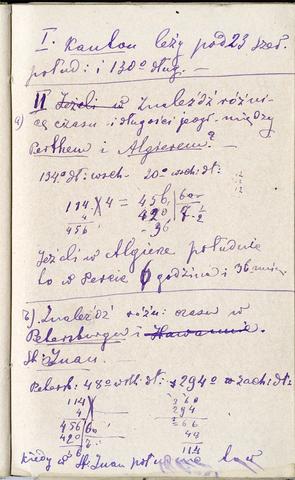 I. Kanton leży pod 23 szer.
połud: i 130° dług. —
II Jeżeli w Znaleźdź różni-
a) cę czasu i długości jeogr. między
Perthem i Algierem?
134° dł: wsch- 20° wsch: dł:
114 × 4 = 456, 60
4 420 7. 1/2
456 36
Jeżeli w Algierze południe
to w Percie 6 godzina i 36 min.
b) Znaleźdź różn: czasu w
Petersburgu i Hawannie.
St: Juan.
Petersb: 48° wsch: dł: 294° w zach: dł:
114 360
4 294
456 60 66
420 7. 48
36 114
kiedy w St Juan południe